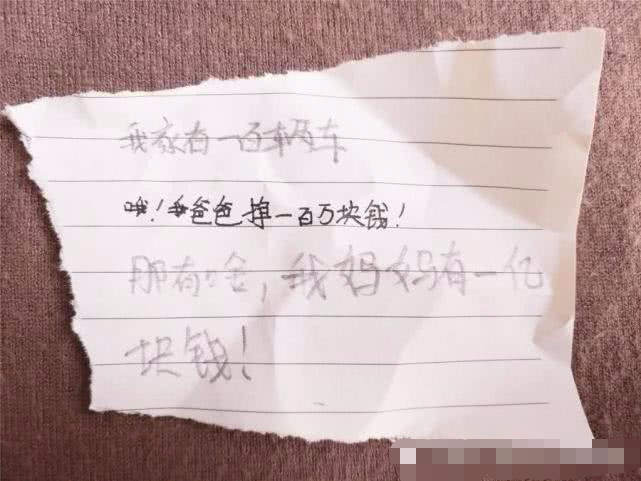 我家有一百辆车
哦！我爸爸挣一百万块钱！
那有啥，我妈妈有一亿
块钱！